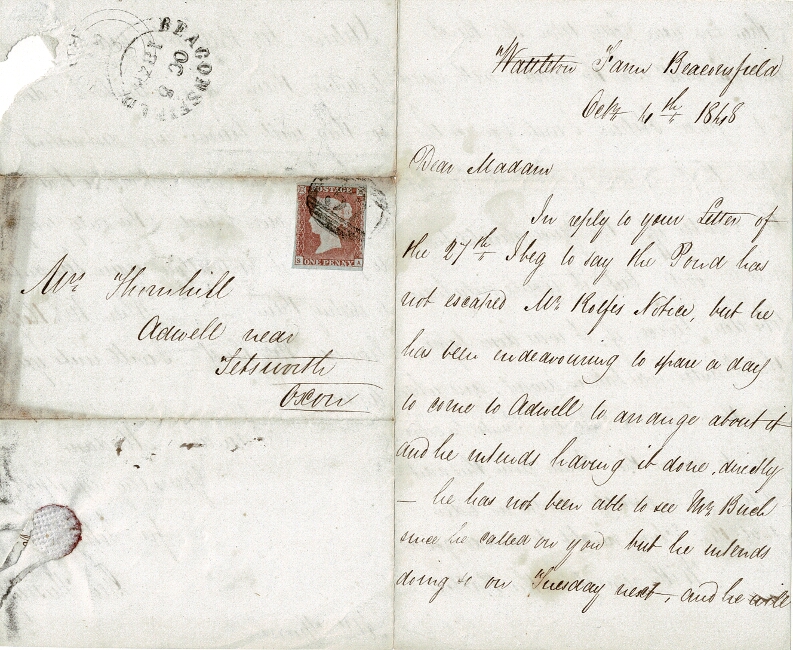 BEACONSFIELD
OC 5
1848
POSTAGE
S ONE PENNY A
Mrs Thornhill
Adwell near
Tetsworth
Oxon
Wattleton Farm Beaconsfield
Octr 4th 1848
Dear Madam
In reply to your Letter of
the 27th I beg to say the Pond has
not escaped Mr Rolfes Notice, but he
has been endeavouring to spare a day
to come to Adwell to arrange about it
and he intends having it done directly
— he has not been able to see Mr
since he called on you but he intends
doing so on Tuesday next, and he will